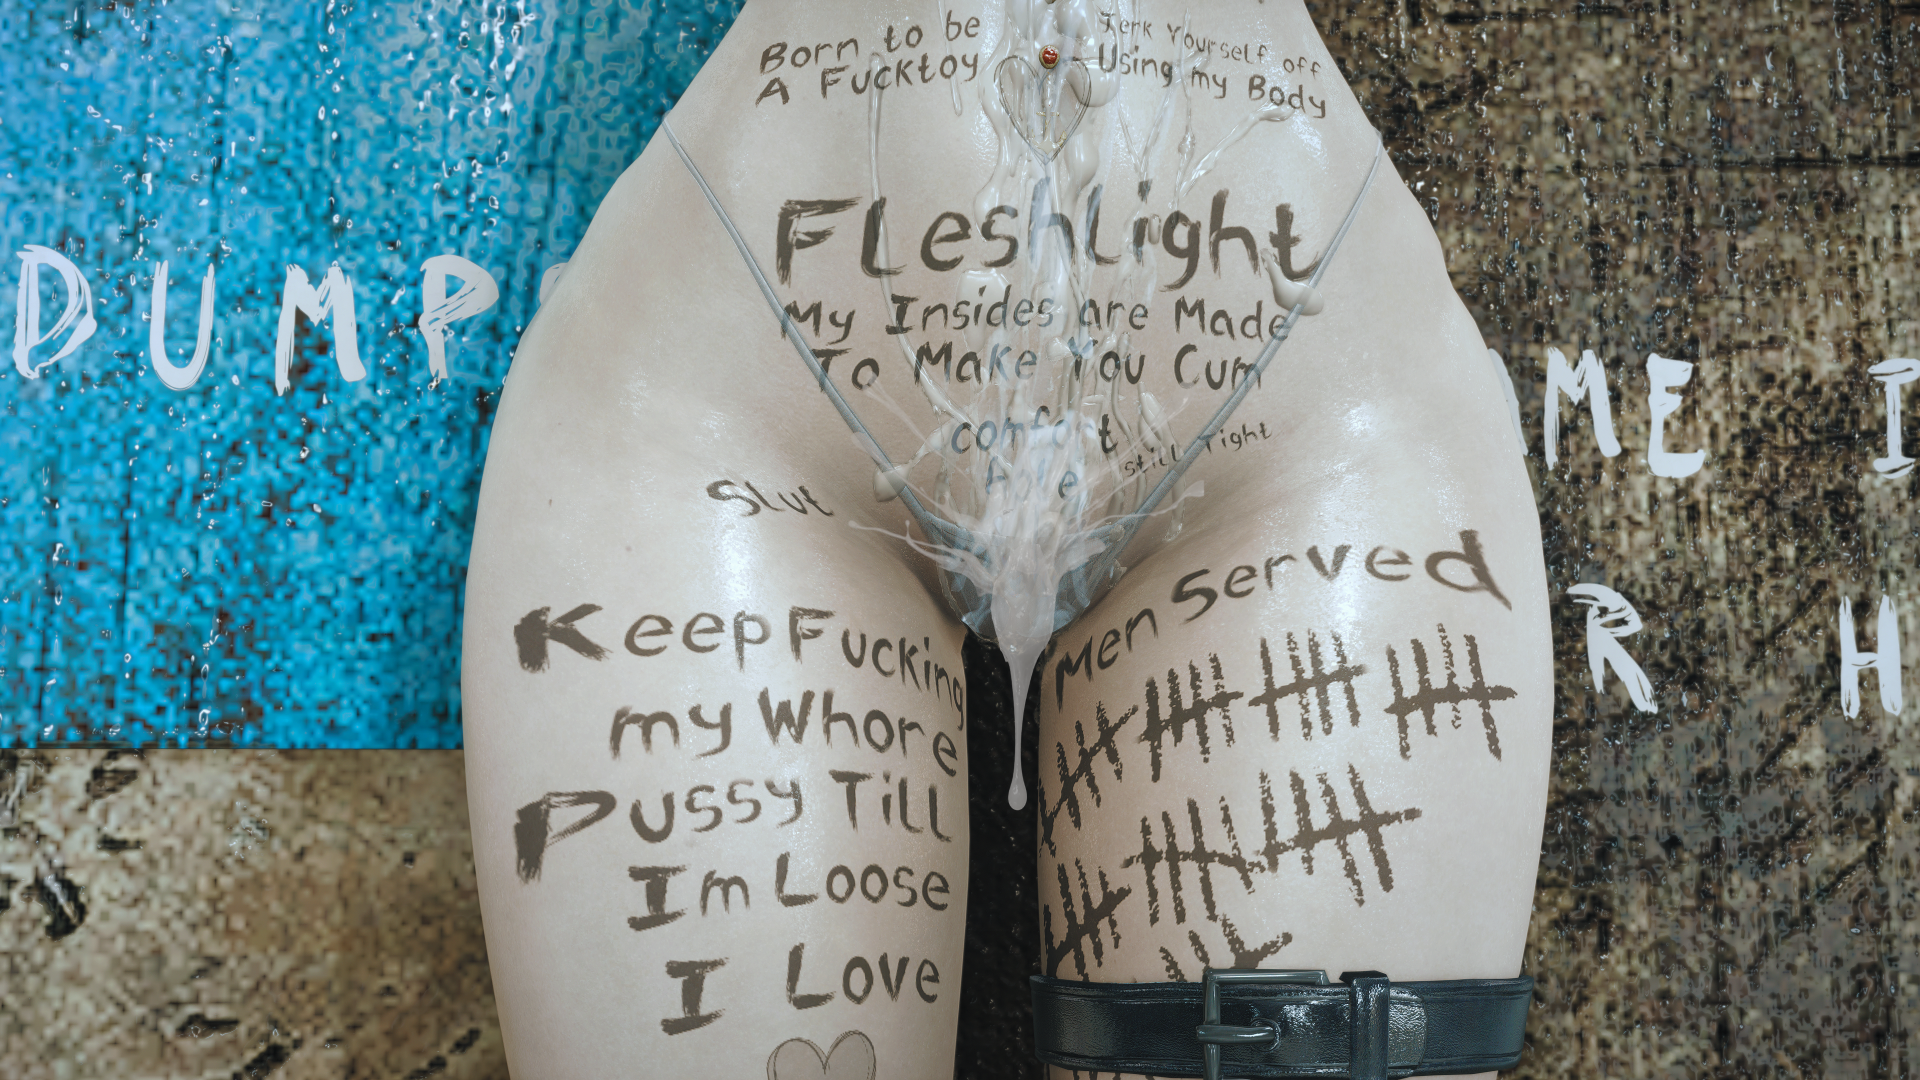 Born to be
A Fucktoy
Jerk Yourself off
Using my Body
FLeshLight
My Insides are Made
To Make You Cum
comfort
still Tight
Slut
Keep Fucking
my Whore
Pussy Till
Im Loose
I Love
Men Served
DUMP
ME I
R H